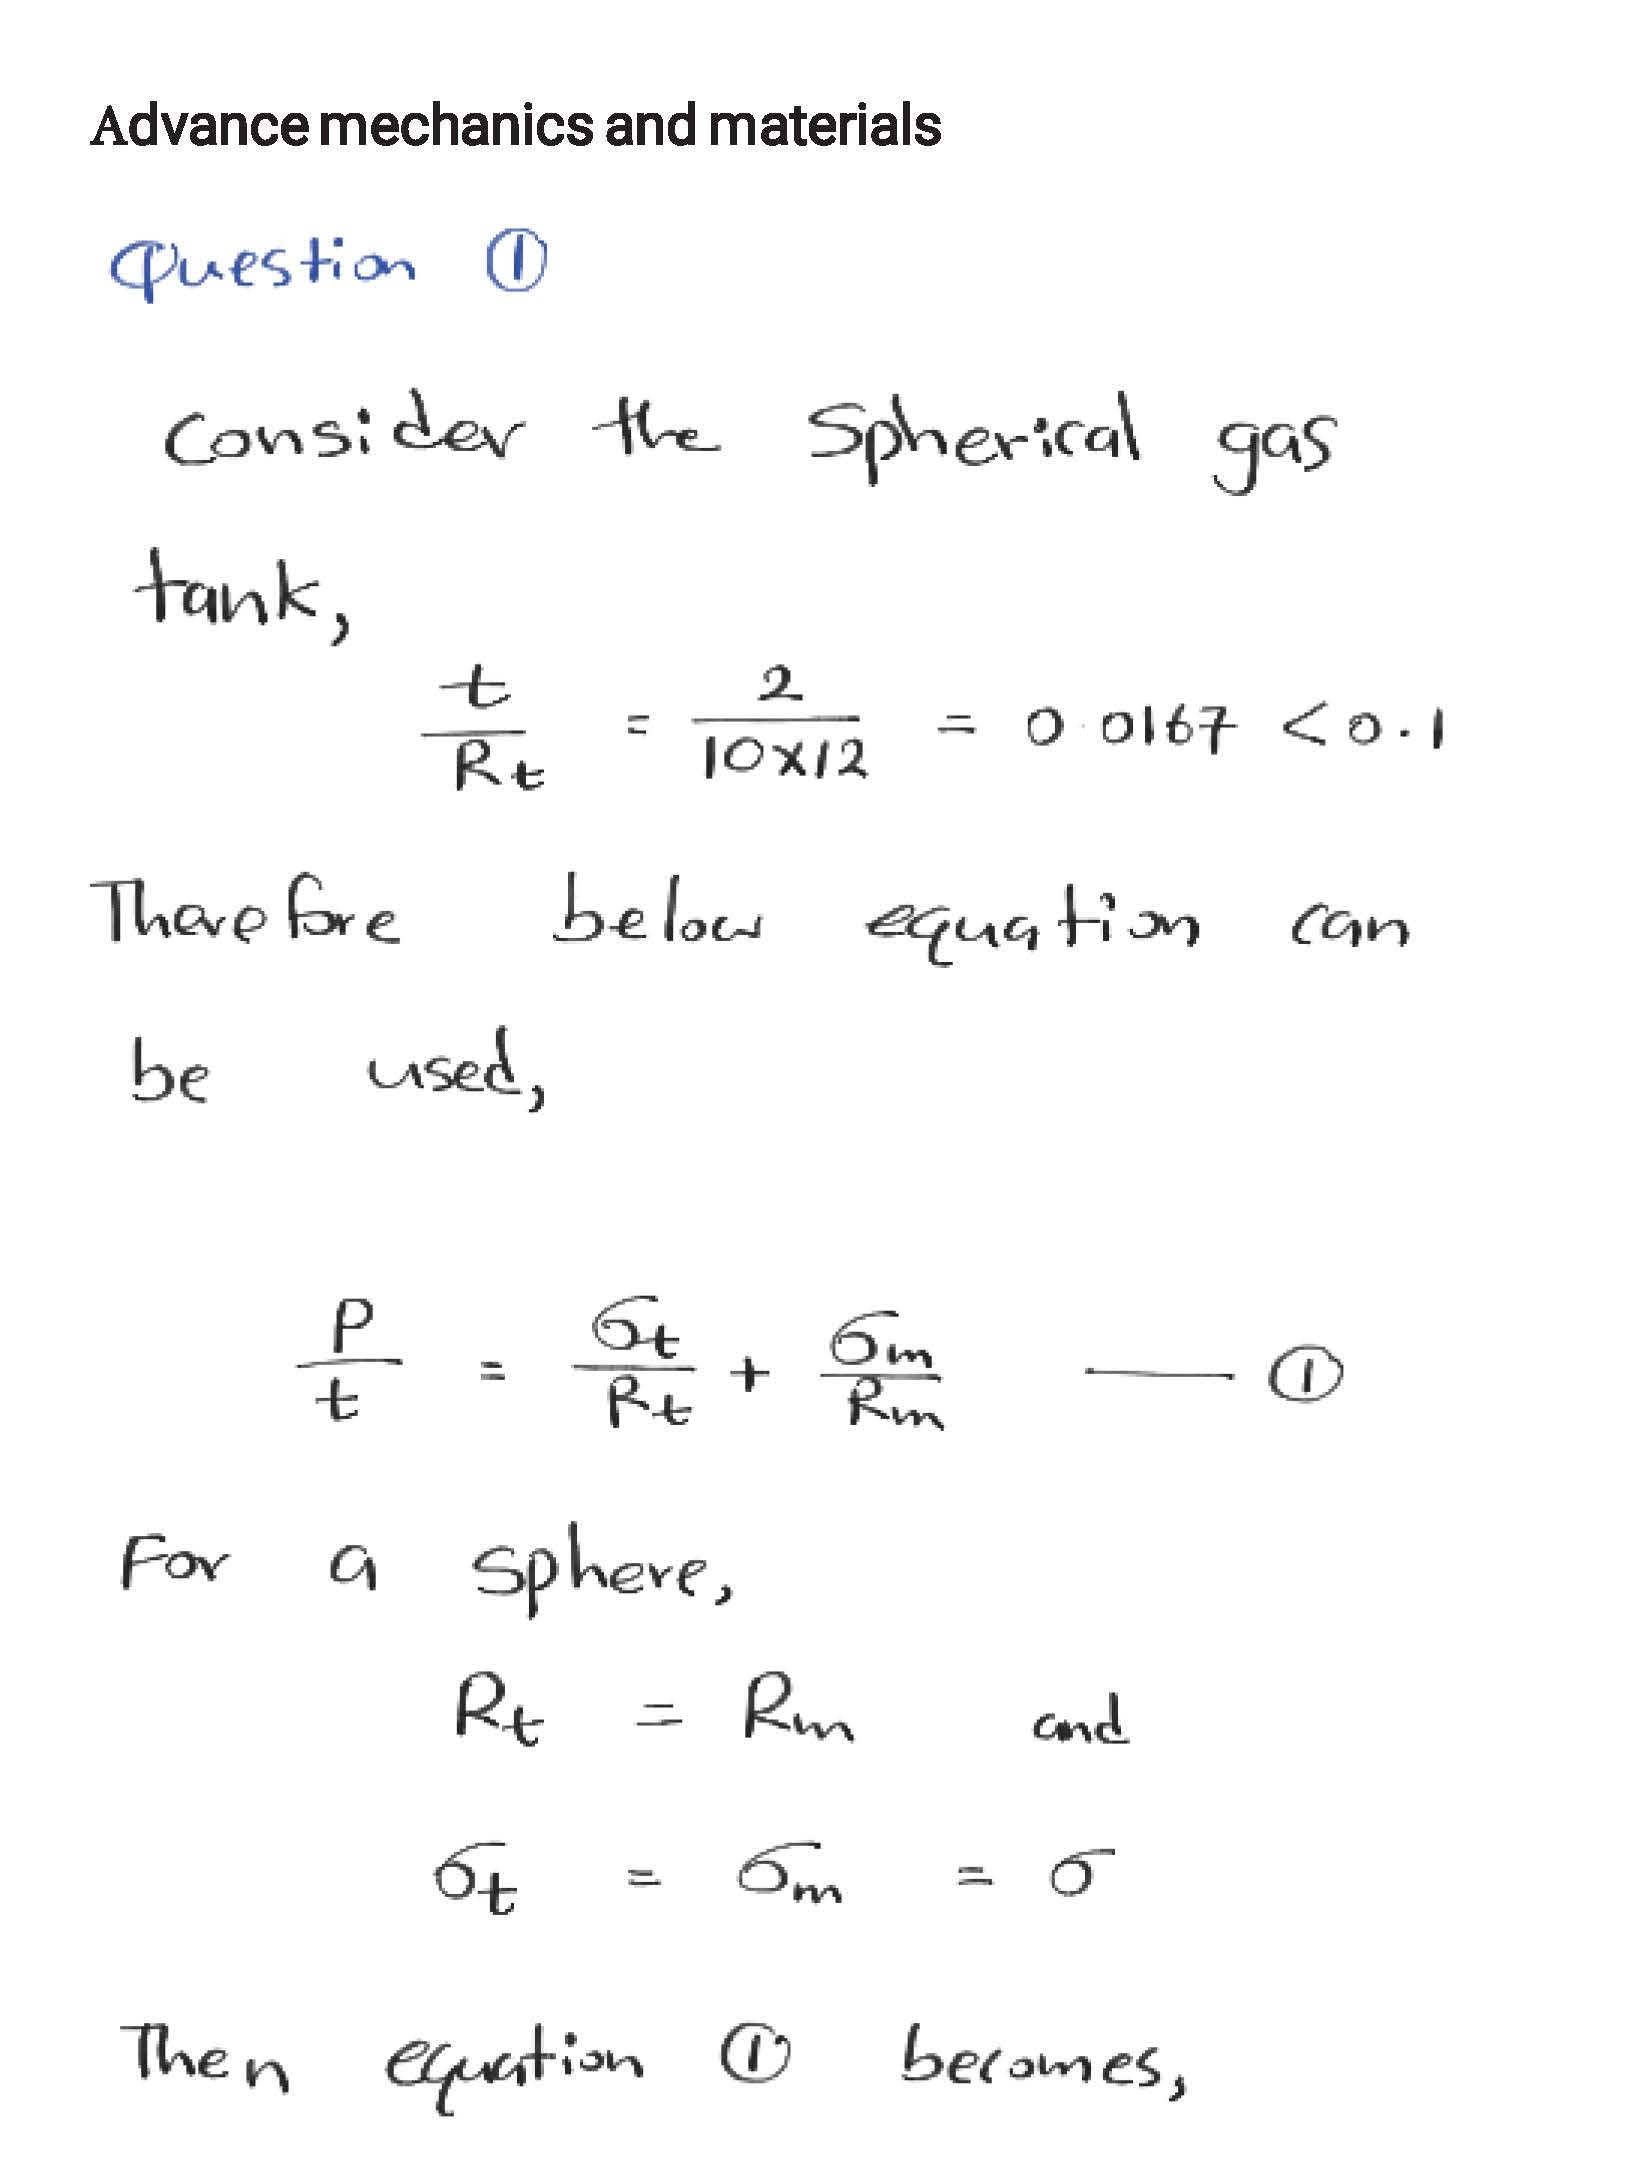 Advance mechanics and materials
Question ①
Consider the Spherical gas
tank,
t/Rt = 2/(10×12) = 0.0167 < 0.1
Therefore below equation can
be used,
P/t = σt/Rt + σm/Rm —— ①
For a sphere,
Rt = Rm and
σt = σm = σ
Then equation ① becomes,